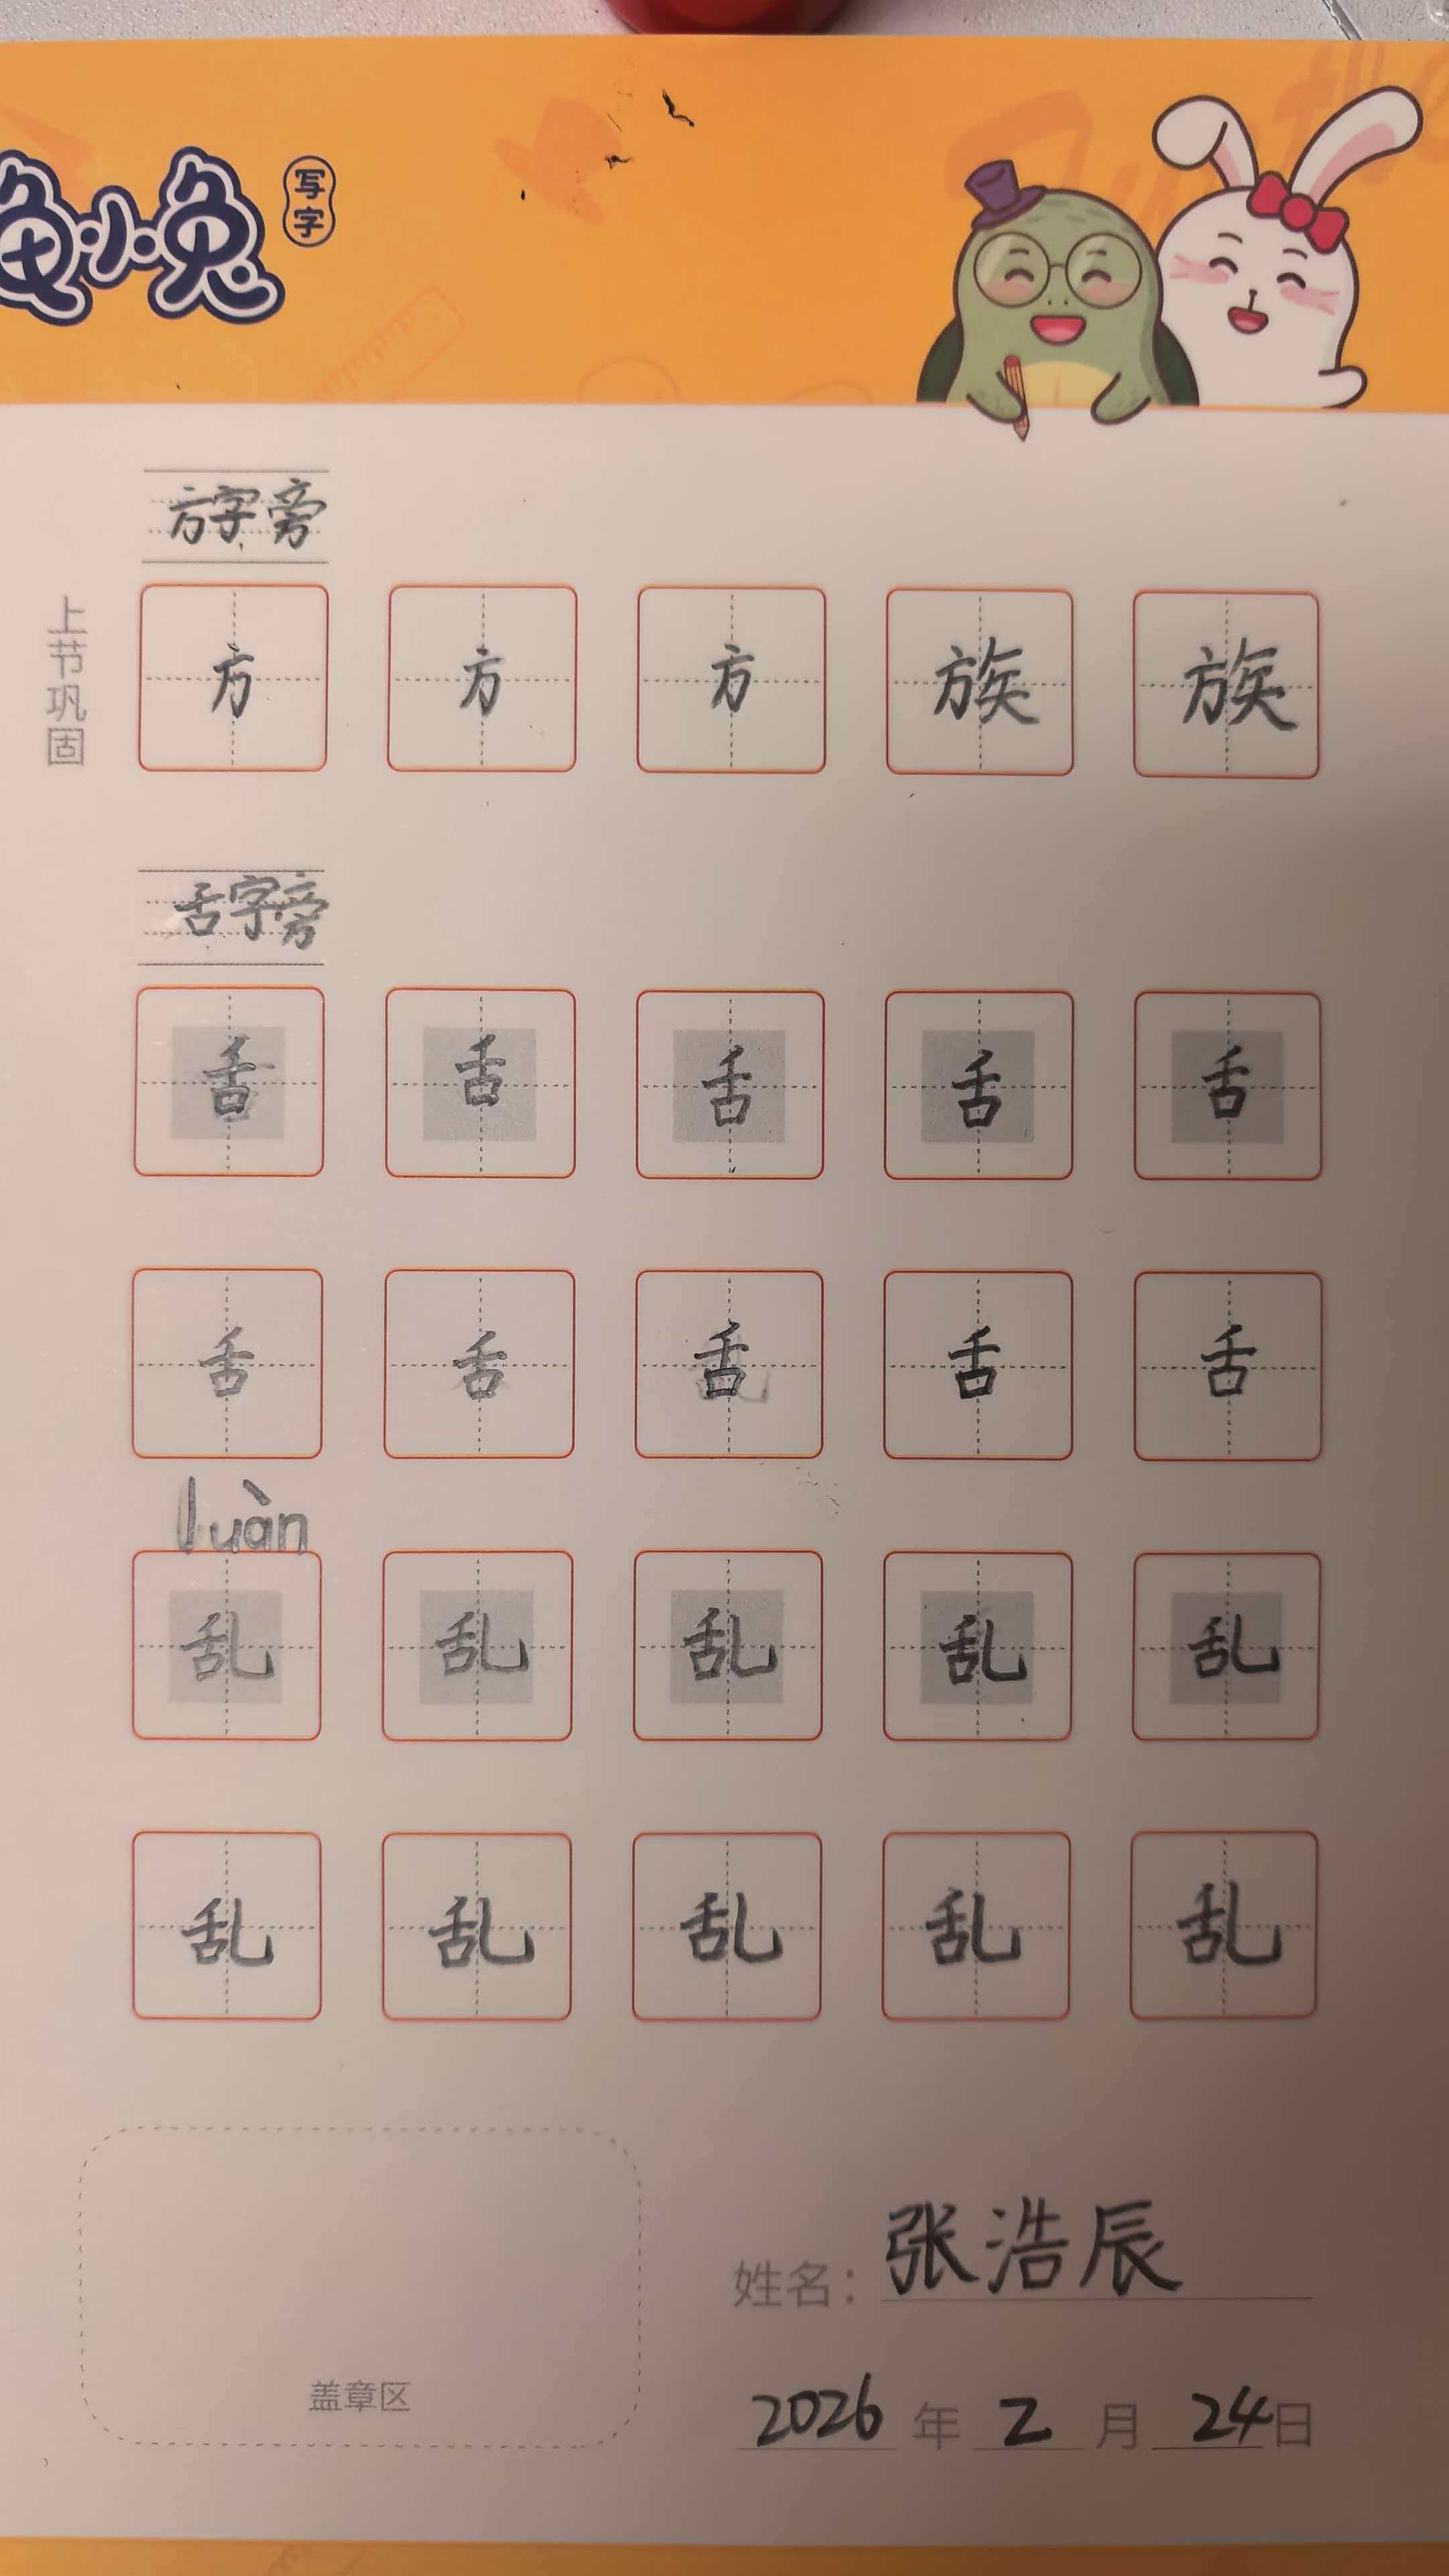 龟小兔 写字
方字旁
上节巩固
方 方 方 族 族
舌字旁
舌 舌 舌 舌 舌
舌 舌 舌 舌 舌
luàn
乱 乱 乱 乱 乱
乱 乱 乱 乱 乱
姓名：张浩辰
盖章区
2026 年 2 月 24 日